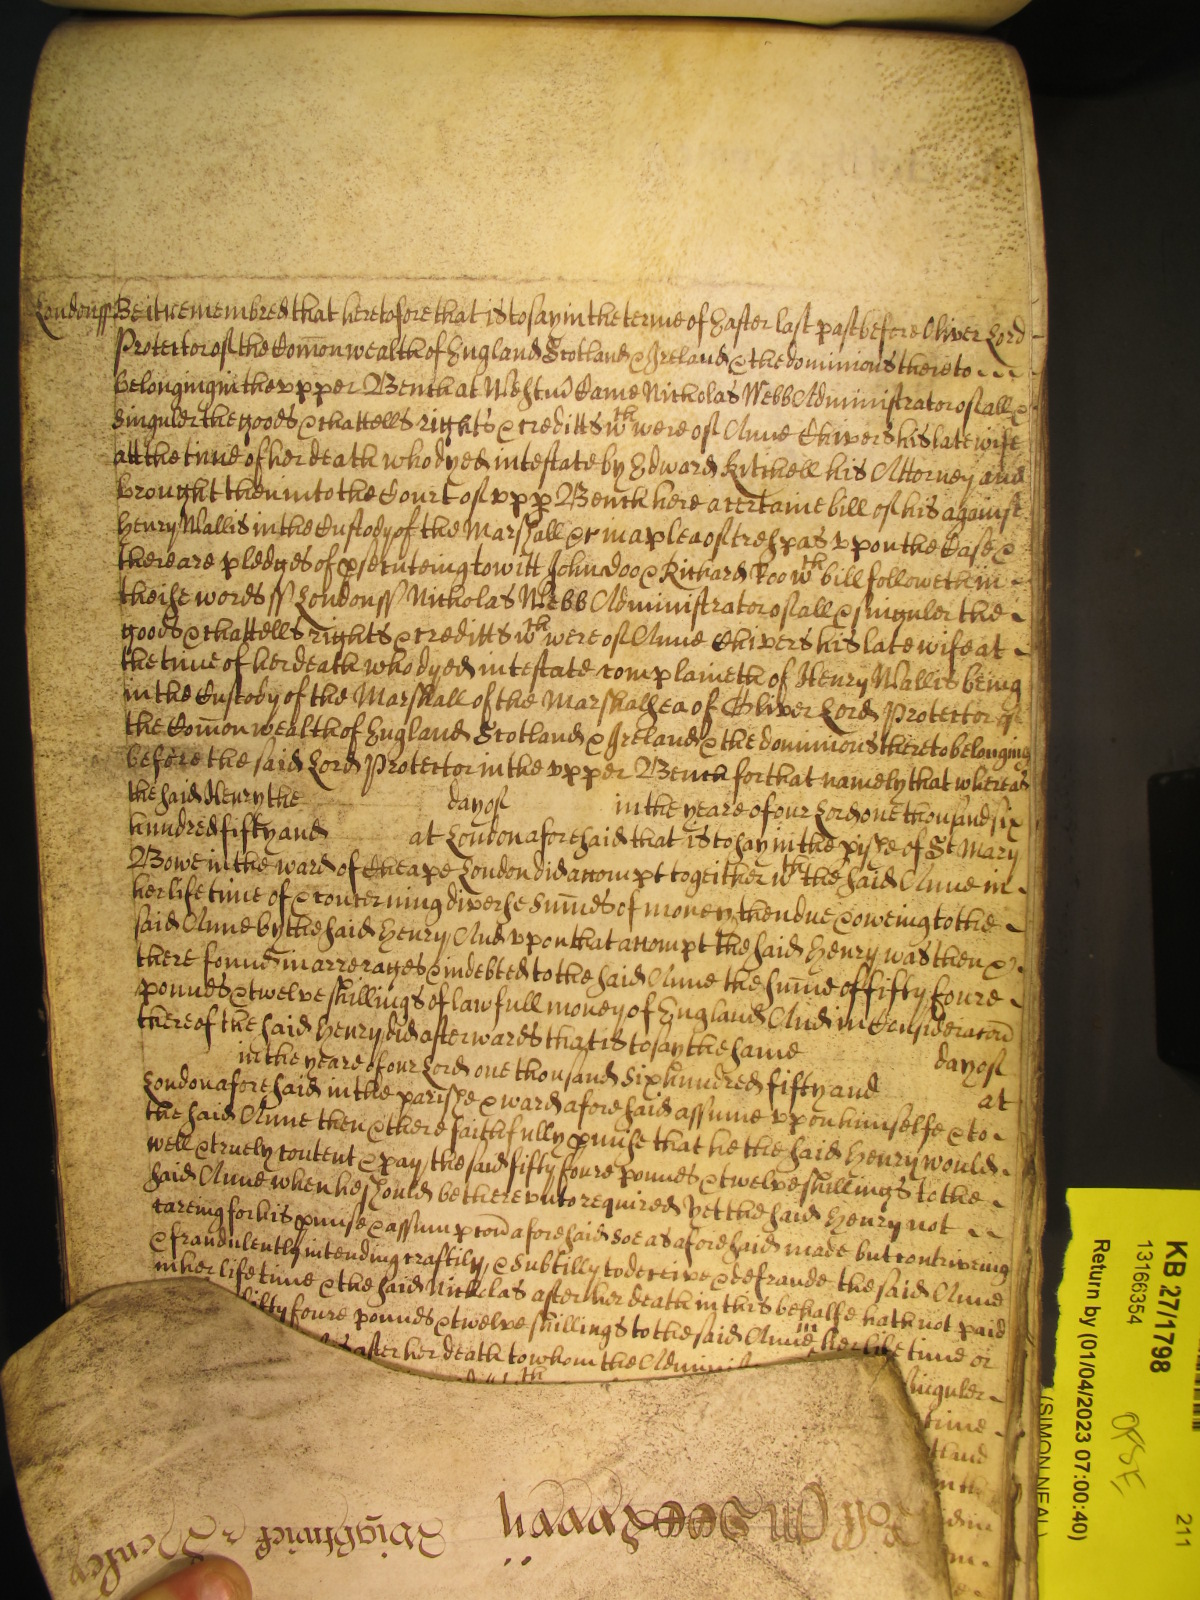 Londonss Be it remembred that heretofore that is to say in the terme of Easter last past before Oliver Lord
Protector of the Com̄onwealth of England Scotland & Ireland & the dominions thereto
belonging in the upper Bench at Westm̄ Came Nicholas Webb Administrator of all &
singuler the goods & chattells rights & creditts wᵗʰ were of Anne Chivers his late wife
att the time of her death who dyed intestate by Edward Kitchell his Attorney and
brought then into the Court of upper Bench here a certaine bill of his against
Henry Wallis in the Custody of the Marshall &c in a plea of trespas upon the Case &
there are pledges of psecuteing to witt John doo & Richard Roo wᵗʰ bill followeth in
theise words ss Londonss Nicholas Webb Administrator of all & singuler the
goods & chattells rights & creditts wᵗʰ were of Anne Chivers his late wife at
the time of her death who dyed intestate complaineth of Henry Wallis being
in the Custody of the Marshall of the Marshalsea of Oliver Lord Protector of
the Com̄onwealth of England Scotland & Ireland & the dominions thereto belonging
before the said Lord Protector in the upper Bench for that namely that whereas
the said Henry the day of in the yeare of our Lord one thousand six
hundred fifty and at London aforesaid that is to say in the pishe of St Mary
Bowe in the ward of Cheape London did accompt togeither wᵗʰ the said Anne in
her life time of & concerning diverse sum̄es of money then due & oweing to the
said Anne by the said Henry And upon that accompt the said Henry was then &
there found in arrerages & indebted to the said Anne the sum̄e of fifty foure
pounds & twelve shillings of lawfull money of England And in Consideracon̄
thereof the said Henry did afterwards that is to say the same day of
in the yeare of our Lord one thousand six hundred fifty and at
London aforesaid in the parishe & ward aforesaid assume upon himselfe & to
the said Anne then & there faithfully pmise that he the said Henry would
well & truely content & pay the said fifty foure pounds & twelve shillings to the
said Anne when he should be thereunto required Yet the said Henry not
careing for his pmise & assumpcon̄ aforesaid soe as aforesaid made but contriveing
& fraudulently intending craftily & subtilly to deceive & defraude the said Anne
in her life time & the said Nicholas after her death in this behalfe hath not paid
fifty foure pounds & twelve shillings to the said Anne in her life time or
after her death to whom the
singuler
time
KB 27/1798
13166354
Return by (01/04/2023 07:00:40)
(SIMON NEAL)
211